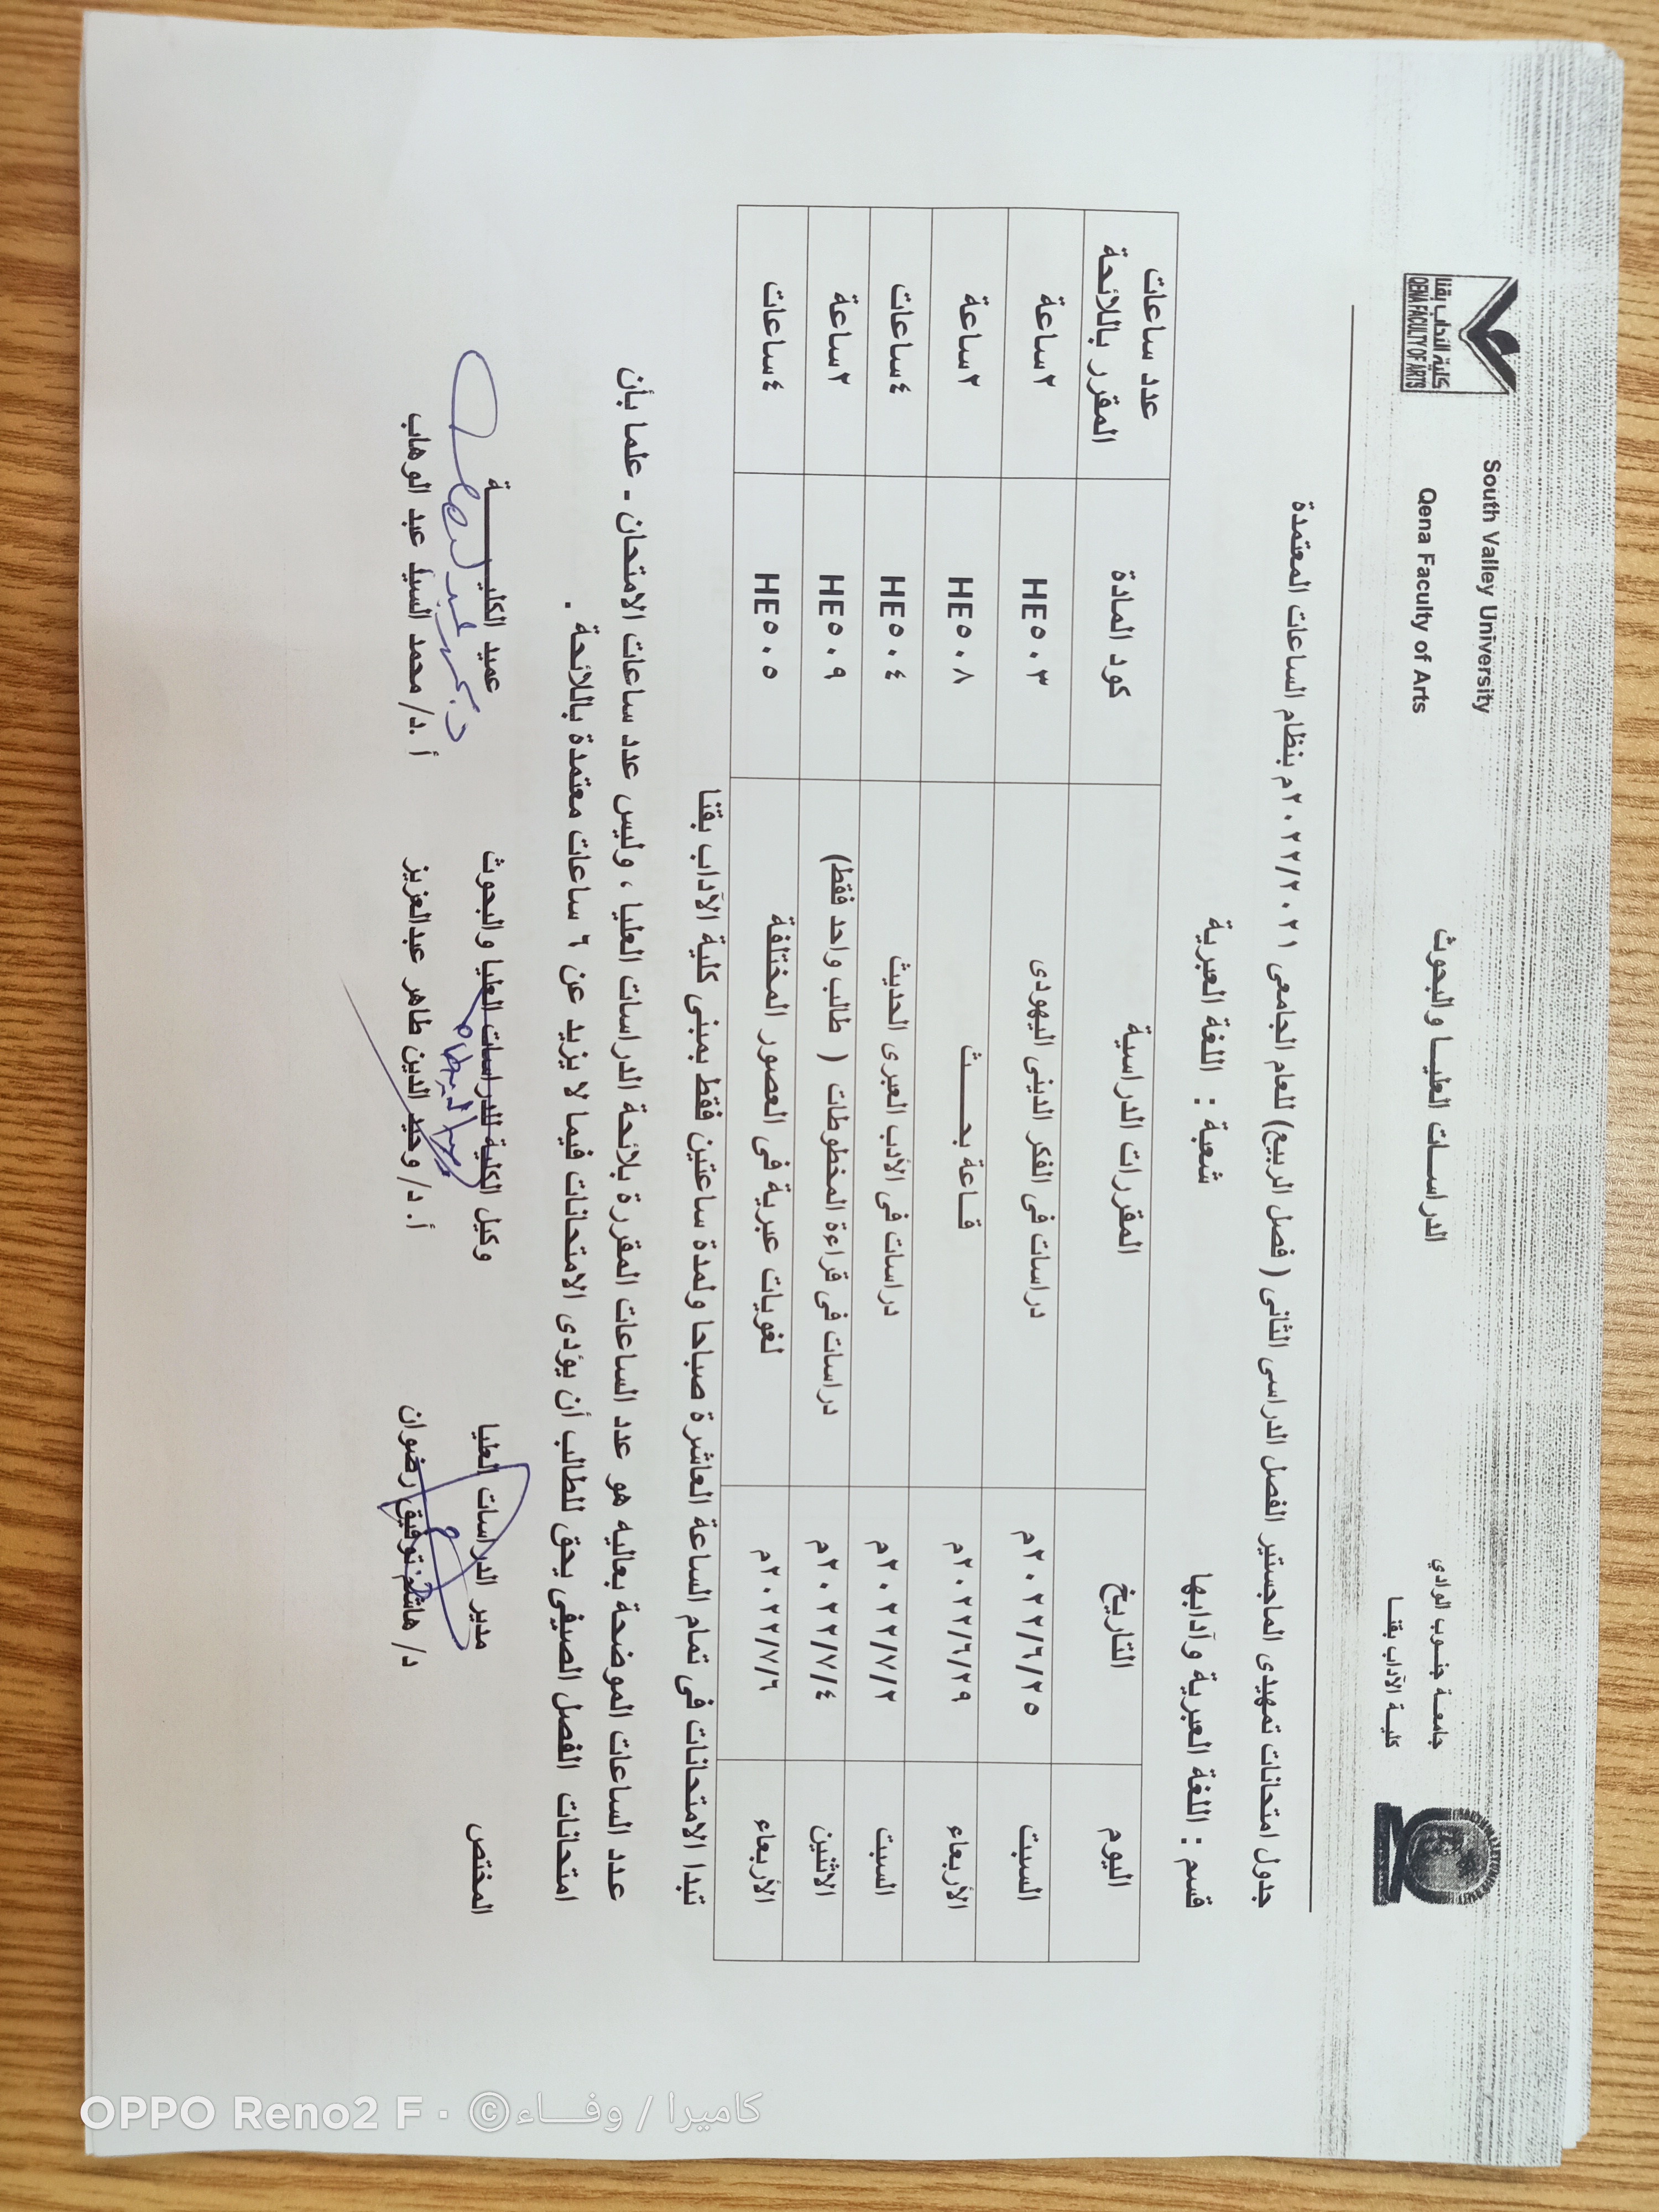 جامعـة جنـوب الوادي
كليـة الآداب بقنـا
الدراسـات العليـا والبحوث
South Valley University
Qena Faculty of Arts
كلية الآداب بقنا
QENA FACULTY OF ARTS
جدول امتحانات تمهيدى الماجستير الفصل الدراسى الثانى ( فصل الربيع) للعام الجامعى ٢٠٢٢/٢٠٢١م بنظام الساعات المعتمدة
قسم : اللغة العبرية وآدابها شعبة : اللغة العبرية
اليوم التاريخ المقررات الدراسية كود المادة عدد ساعات المقرر باللائحة
السبت ٢٠٢٢/٦/٢٥م دراسات فى الفكر الدينى اليهودى HE٥٠٣ ٢ساعة
الأربعاء ٢٠٢٢/٦/٢٩م قـاعة بحـــث HE٥٠٨ ٢ساعة
السبت ٢٠٢٢/٧/٢م دراسات فى الأدب العبرى الحديث HE٥٠٤ ٤ساعات
الاثنين ٢٠٢٢/٧/٤م دراسات فى قراءة المخطوطات ( طالب واحد فقط) HE٥٠٩ ٢ساعة
الأربعاء ٢٠٢٢/٧/٦م لغويات عبرية فى العصور المختلفة HE٥٠٥ ٤ساعات
تبدا الامتحانات فى تمام الساعة العاشرة صباحا ولمدة ساعتين فقط بمبنى كلية الآداب بقنا
عدد الساعات الموضحة بعاليه هو عدد الساعات المقررة بلائحة الدراسات العليا ، وليس عدد ساعات الامتحان - علما بأن
امتحانات الفصل الصيفى يحق للطالب أن يؤدى الامتحانات فيما لا يزيد عن ٦ ساعات معتمدة باللائحة .
المختص مدير الدراسات العليا وكيل الكلية للدراسات العليا والبحوث عميد الكليــــــة
د/ هاشم توفيق رضوان أ.د/ وحيد الدين طاهر عبدالعزيز أ .د/ محمد السيد عبد الوهاب
OPPO Reno2 F · ©كاميرا / وفــــاء